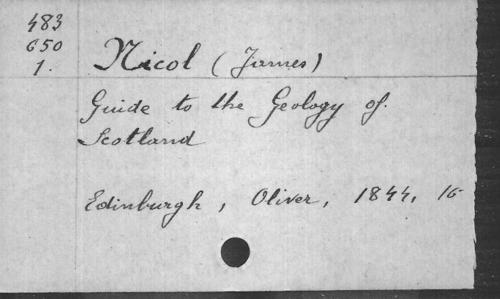 483
650
1.
Nicol (James)
Guide to the Geology of.
Scotland
Edinburgh, Oliver, 1844, 16